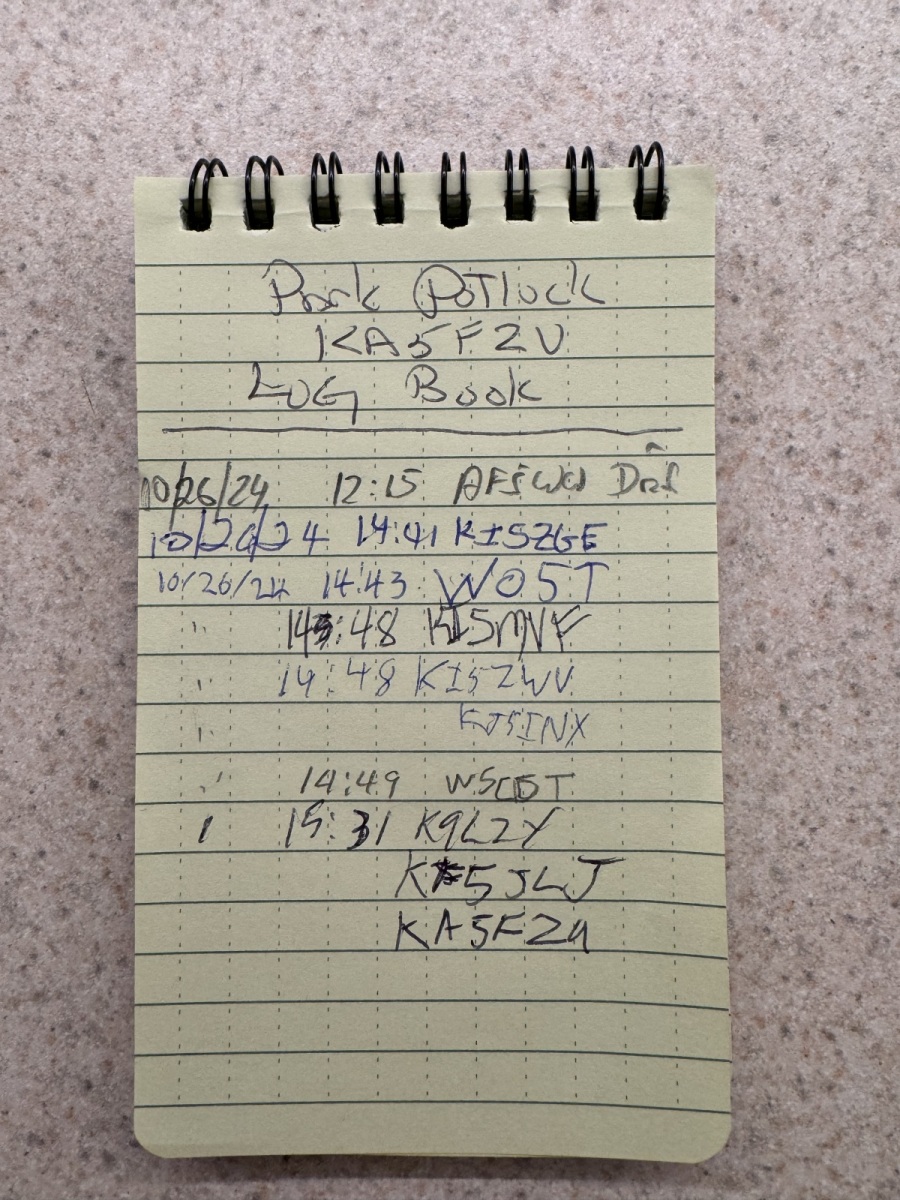 Park Potluck
KA5FZU
LOG Book
10/26/24 12:15
10/26/24 14:41 KI5ZGE
10/26/24 14:43 WO5T
" 14:48 KI5MVF
" 14:48 KI5ZWV
" KJ5INX
" 14:49
" 15:31 K9LZY
K 5JLJ
KA5FZU